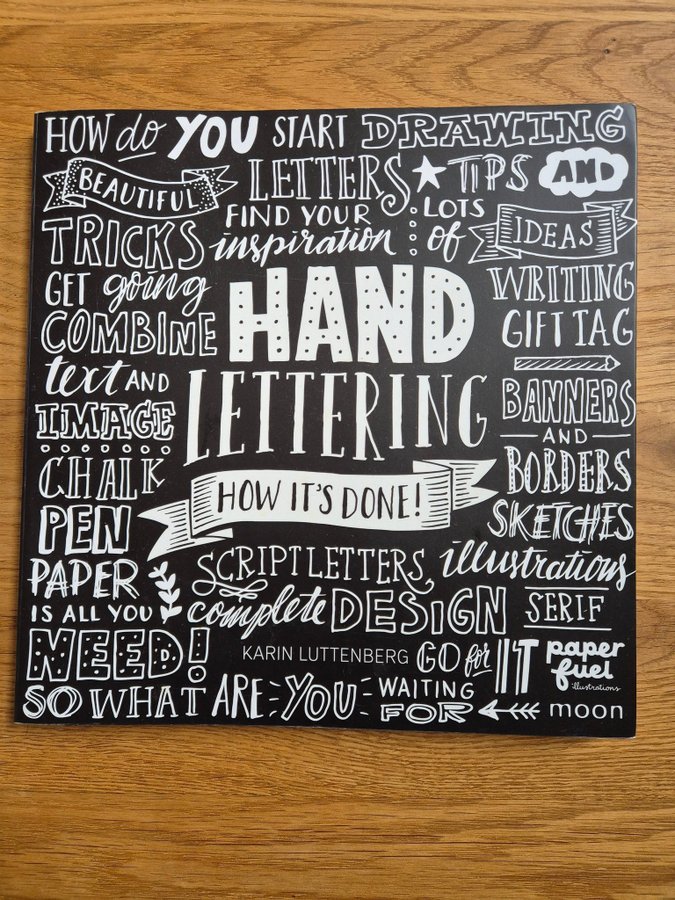 HOW do YOU START DRAWING
BEAUTIFUL LETTERS TIPS AND
TRICKS FIND YOUR inspiration LOTS of IDEAS
GET going
COMBINE
text AND
IMAGE
HAND
LETTERING
HOW IT'S DONE!
WRITING
GIFT TAG
BANNERS
AND
BORDERS
SKETCHES
CHALK
PEN
PAPER
IS ALL YOU
NEED!
SCRIPT LETTERS, illustrations
complete DESIGN SERIF
KARIN LUTTENBERG GO for IT
paper
fuel
illustrations
SO WHAT ARE YOU WAITING
FOR
moon